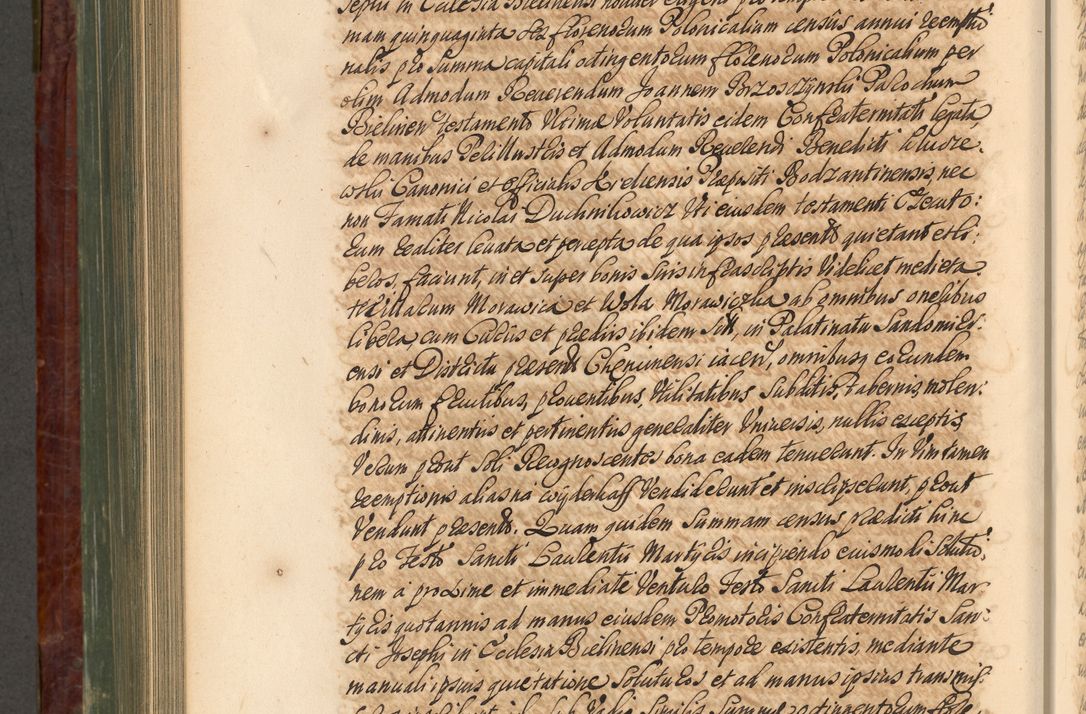 mam quinquaginta sex florenorum Polonicalium censûs annui reempti
nalis pro summa capitali octingentorum florenorum Polonicalium per
olim Admodum Reuerendum Joannem Brzosczynski Parochum
Bielinen testamento Vltimæ Voluntatis eidem Confraternitati legata,
de manibus Perillustris et Admodum Reuerendi Benedicti
wski Canonici et Officialis Kielcensis Præpositi Bodzantinensis, nec
non Famati Nicolai Duchnikowicz Vti eiusdem testamenti Executo:
rum realiter leuata et percepta de qua ipsos præsentib quietant et li:
beros, faciunt, in et super bonis suis infrascriptis Videlicet medieta:
te Villarum Morawica et Wola Morawiczka ab omnibus oneribus
libera cum Curiis et prædiis ibidem Sitt, in Palatinatu Sandomir:
ensi et Districtu præsenti Chencinensi iacen, omnibusq eorundem
bonorum fructibus, prouentibus, Vtilitatibus Subditis, tabernis, molen:
dinis, attinentiis et pertinentiis generaliter Vniuersis, nullis exceptis,
Verum prout Soli Recognoscentes bona eadem tenuerunt. In Vim tamen
reemptionis alias na wyderkaff Vendiderunt et inscripserunt, prout
Vendunt præsentib. Quam quidem Summam census prædicti hinc
pro Festo Sancti Laurentii Martyris incipiendo eiusmodi Solutio:
nem a proxime et immediate Venturo Festo Sancti Laurentii Mar
tyris quotannis ad manus eiusdem Promotoris Confraternitatis San:
cti Josephi in Ecclesia Bielinensi pro tempore existentis, mediante
manuali ipsius quietatione Soluturos et ad manus ipsius transmis: